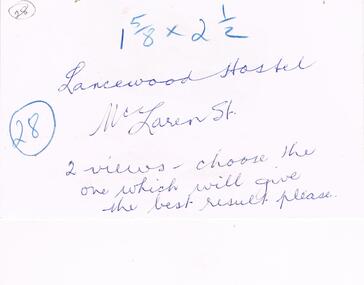 28
1 5/8 x 2 1/2
Lancewood Hostel
28
McLaren St.
2 views - choose the
one which will give
the best result please.